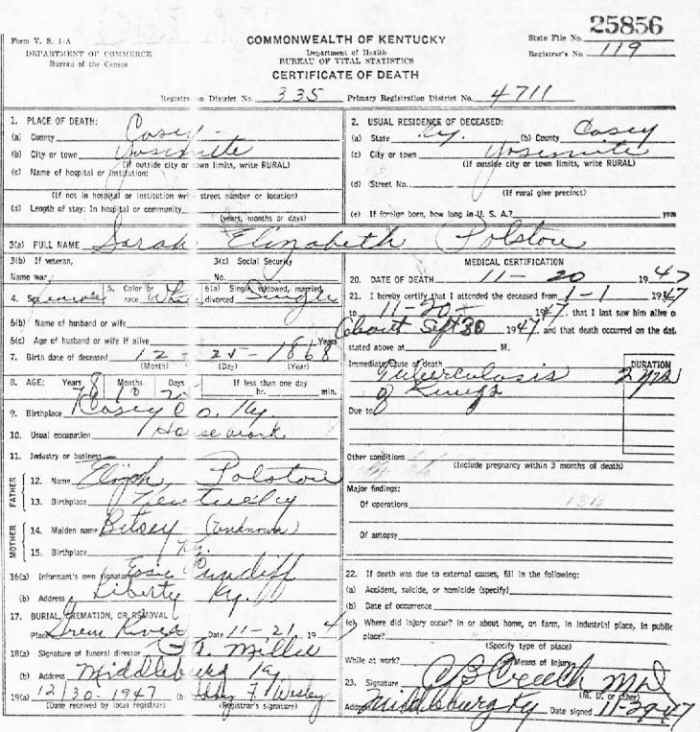 25856
Form V. S. 1-A
DEPARTMENT OF COMMERCE
Bureau of the Census
COMMONWEALTH OF KENTUCKY
Department of Health
BUREAU OF VITAL STATISTICS
CERTIFICATE OF DEATH
State File No.
Registrar's No. 119
Registration District No. 335 Primary Registration District No. 4711
1. PLACE OF DEATH:
(a) County Casey
(b) City or town Yosemite
(If outside city or town limits, write RURAL)
(c) Name of hospital or institution:
(If not in hospital or institution write street number or location)
(d) Length of stay: In hospital or community
(years, months or days)
2. USUAL RESIDENCE OF DECEASED:
(a) State Ky. (b) County Casey
(c) City or town Yosemite
(If outside city or town limits, write RURAL)
(d) Street No.
(If rural give precinct)
(e) If foreign born, how long in U. S. A.? years
3(a) FULL NAME Sarah Elizabeth Polston
3(b) If veteran,
Name war
3(c) Social Security
No.
4. Sex Female 5. Color or race Whi 6(a) Single, widowed, married, divorced Single
6(b) Name of husband or wife
6(c) Age of husband or wife if alive Years
7. Birth date of deceased 12 - 25 - 1868
(Month) (Day) (Year)
8. AGE: Years 78 Months 10 Days If less than one day
hr. min.
9. Birthplace Casey Co. Ky.
10. Usual occupation Housework
11. Industry or business
FATHER
12. Name Elijah Polston
13. Birthplace Kentucky
MOTHER
14. Maiden name Betsey (unknown)
15. Birthplace Ky.
16(a) Informant's own signature Cundiff
(b) Address Liberty Ky.
17. BURIAL, CREMATION, OR REMOVAL
Place Green River Date 11-21 1947
18(a) Signature of funeral director Miller
(b) Address Middleburg Ky
19(a) 12/30-1947 (b) F. Wesley
(Date received by local registrar) (Registrar's signature)
MEDICAL CERTIFICATION
20. DATE OF DEATH 11-20 1947
21. I hereby certify that I attended the deceased from 1-1 1947
to 11-20- 1947, that I last saw him alive o
about Sept 30 1947, and that death occurred on the dat
stated above at M.
Immediate cause of death
Tuberculosis
of Lungs
DURATION
2 yrs
Due to
Other conditions
(Include pregnancy within 3 months of death)
Major findings:
Of operations
Of autopsy
22. If death was due to external causes, fill in the following:
(a) Accident, suicide, or homicide (specify)
(b) Date of occurrence
(c) Where did injury occur? In or about home, on farm, in industrial place, in public
place?
(Specify type of place)
While at work? Means of injury
23. Signature CB Creech MD
(M. D. or other)
Address Middleburg Ky Date signed 11-29-47